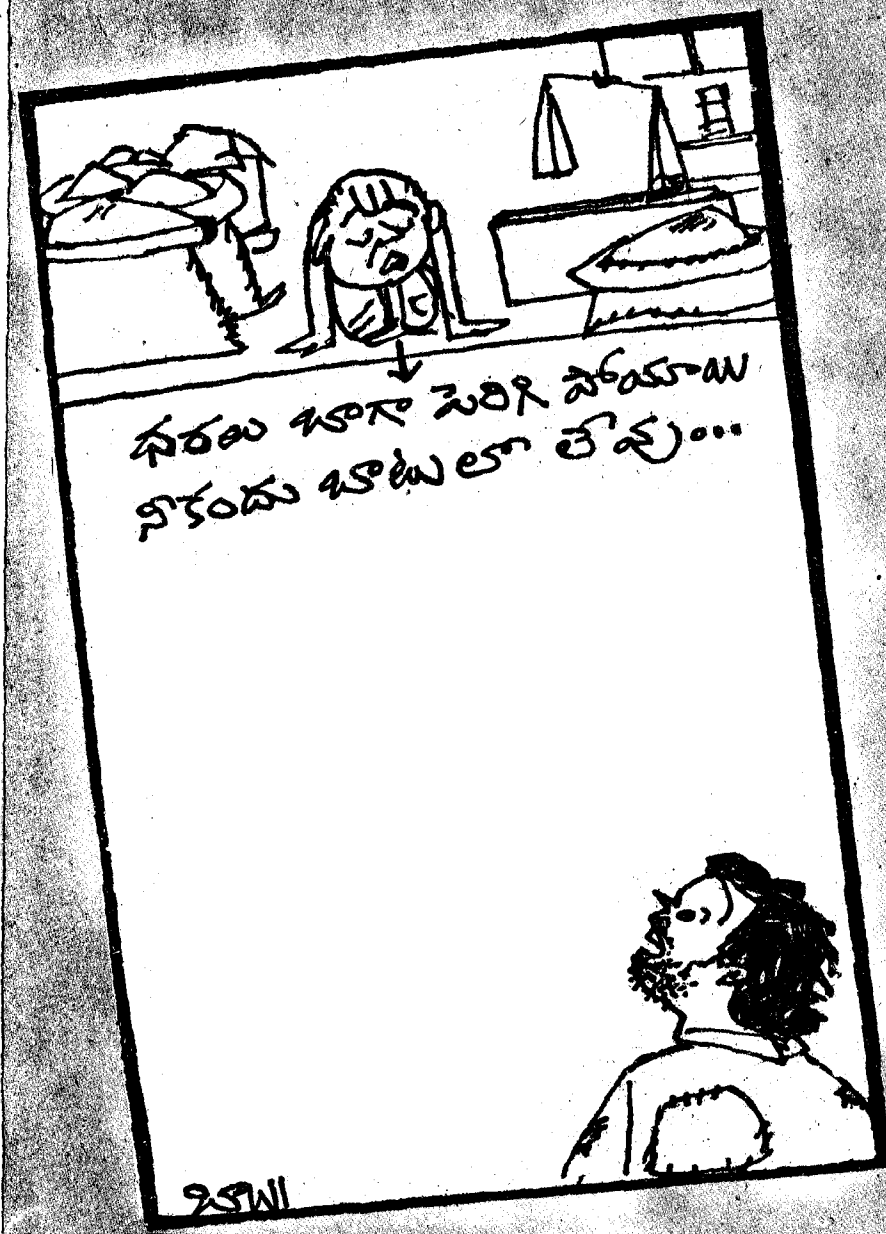 ధరలు బాగా పెరిగి పోయాయి
నీకందు బాటులో లేవు...
బాబు